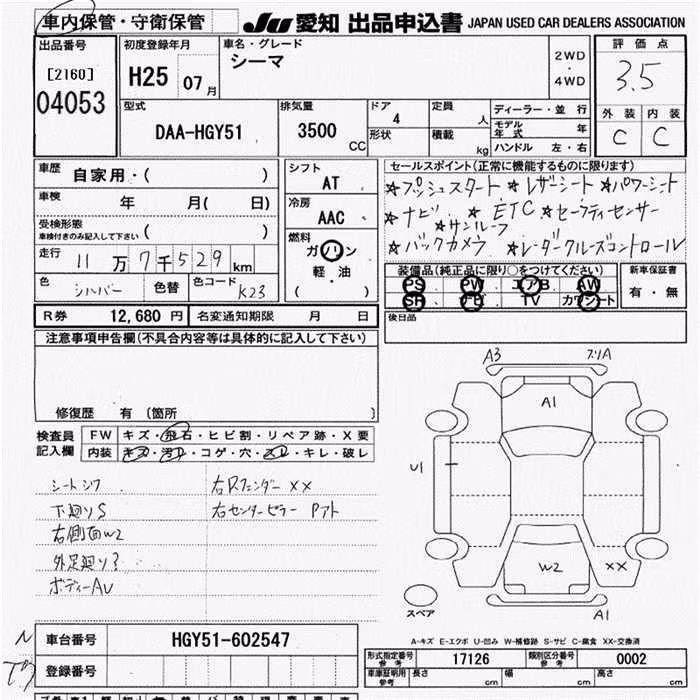 車内保管・守衛保管 JU 愛知 出品申込書 JAPAN USED CAR DEALERS ASSOCIATION
出品番号 初度登録年月 車名・グレード 評価点
[2160] H25 07月 シーマ 2WD・4WD 3.5
04053
型式 排気量 ドア 定員 ディーラー・並行 外装 内装
DAA-HGY51 3500 CC 4 人 モデル年式 年 C C
形状 積載 kg ハンドル 左・右
車歴 自家用・( ) シフト AT セールスポイント(正常に機能するものに限ります)
車検 年 月( 日) 冷房 AAC ★プッシュスタート ★レザーシート ★パワーシート
受検形態 車検付きのみ記入して下さい ( ) ★ナビ ★ETC ★セーフティセンサー
★サンルーフ
走行 11万7千529km 燃料 ガソリン ★バックカメラ ★レーダークルーズコントロール
軽・油
( )
色 シルバー 色替 色コード K23
装備品(純正品に限り○をつけてください) 新車保証書
PS PW エアB AW 有・無
SR ナビ TV カワシート
R券 12,680円 名変通知期限 月 日 後日品
注意事項申告欄(不具合内容等は具体的に記入して下さい)
修復歴 有 〔箇所
検査員記入欄 FW キズ・飛石・ヒビ割・リペア跡・X要
内装 キズ・汚レ・コゲ・穴・スレ・キレ・破レ
シートシワ 右Fフェンダー××
下廻りS 右センターピラー Pアト
右側面W2
外足廻り?
ボディーAU
A3 ズリA
A1
U1
W2 ××
A1
スペア
A-キズ E-エクボ U-凹み W-補修跡 S-サビ C-腐食 XX-交換済
車台番号 HGY51-602547
登録番号
形式指定番号 参考 17126 類別区分番号 参考 0002
車庫証明用 参考 長さ cm 幅 cm 高さ cm